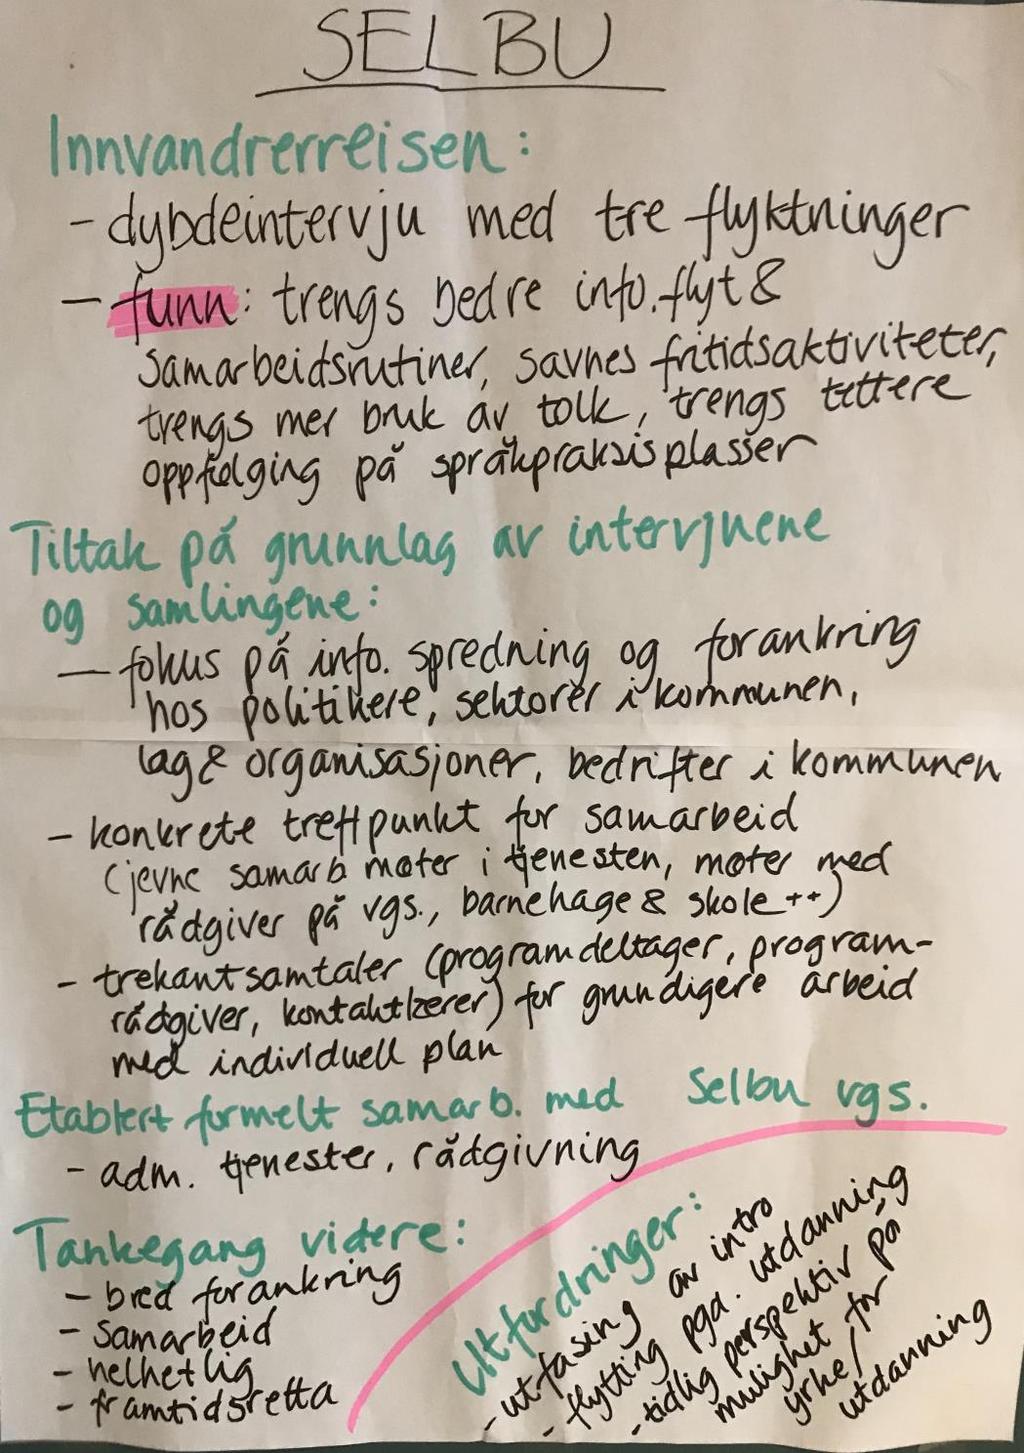 SELBU
Innvandrerreisen:
- dybdeintervju med tre flyktninger
- funn: trengs bedre info.flyt &
samarbeidsrutiner, savnes fritidsaktiviteter,
trengs mer bruk av tolk, trengs tettere
oppfølging på språkpraksisplasser
Tiltak på grunnlag av intervjuene
og samlingene:
- fokus på info. spredning og forankring
hos politikere, sektorer i kommunen,
lag & organisasjoner, bedrifter i kommunen
- konkrete treffpunkt for samarbeid
(jevne samarb møter i tjenesten, møter med
rådgiver på vgs., barnehage & skole ++)
- trekantsamtaler (programdeltager, program-
rådgiver, kontaktlærer) for grundigere arbeid
med individuell plan
Etablert formelt samarb. med Selbu vgs.
- adm. tjenester, rådgivning
Tankegang videre:
- bred forankring
- samarbeid
- helhetlig
- framtidsretta
Utfordringer:
- utfasing av intro
- flytting pga. utdanning
- tidlig perspektiv på
mulighet for
yrke/
utdanning